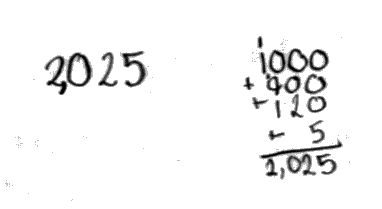 2,025
1
1000
+ 900
+ 120
+ 5
2,025